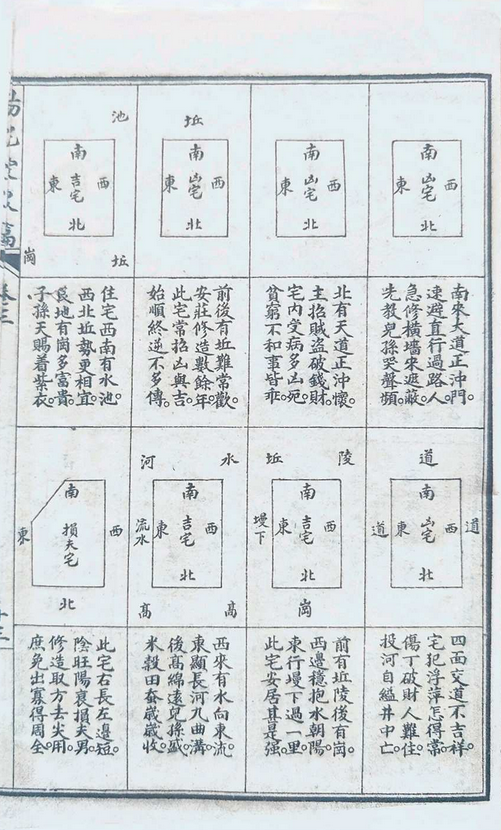 南
西
凶宅
東
北
南來大道正沖門。
速避直行過路人。
急修橫墻來遮蔽。
先教兒孫哭聲頻。
南
西
凶宅
東
北
北有天道正沖懷。
主招賊盗破錢財。
宅内受病多凶死。
貧窮不和事皆乖。
坵
南
西
凶宅
東
北
前後有坵難常歡。
安莊修造數餘年。
此宅常招凶與吉。
始順終逆不多傳。
池
南
西
吉宅
東
北
坵
崗
住宅西南有水池。
西北坵勢更相宜。
艮地有崗多富貴。
子孫天賜着紫衣。
道
南
道
西
凶宅
東
道
北
四面交道不吉祥。
宅犯浮萍怎得常。
傷丁破財人難住。
投河自縊井中亡
陵
坵
南
西
吉宅
東
墁下
北
崗
前有坵陵後有崗。
西邊穩抱水朝陽。
東行墁下過一里。
此宅安居甚是强。
水
河
南
西
吉宅
東
流水
北
高
高
西來有水向東流。
東顯長河九曲溝。
後高綿遠兒孫盛。
米穀田蚕歲歲收。
南
西
損夫宅
東
北
此宅右長左邊短。
陰旺陽衰損夫男。
修造取方去尖用。
庶免出寡得周全。
卷三
十三